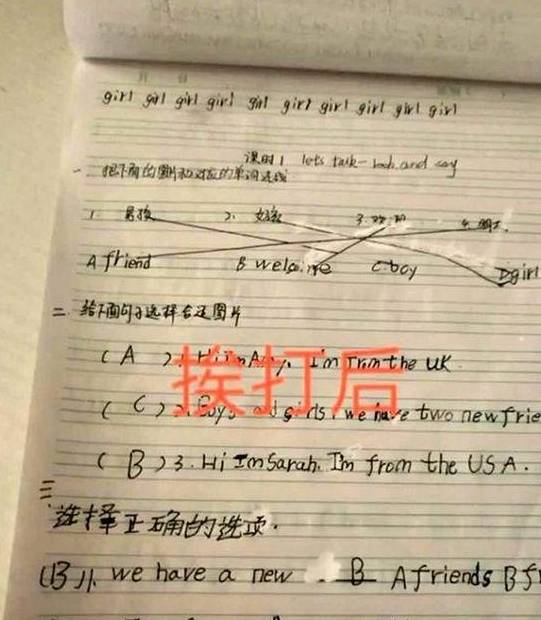 girl girl girl girl girl girl girl girl girl girl
课时1 lets talk- look and say
一 把下面的图片和对应的单词连线
1. 男孩 2. 女孩 3. 欢迎 4. 朋友.
A friend B welcome C boy D girl
二 给下面句子选择合适图片
( A ) Hi I'm Amy. I'm from the UK.
( C ) 2. Boys and girls, we have two new frie
( B ) 3. Hi I'm Sarah. I'm from the USA.
挨打后
三
选择正确的选项.
(B)1. we have a new B A friends B fr